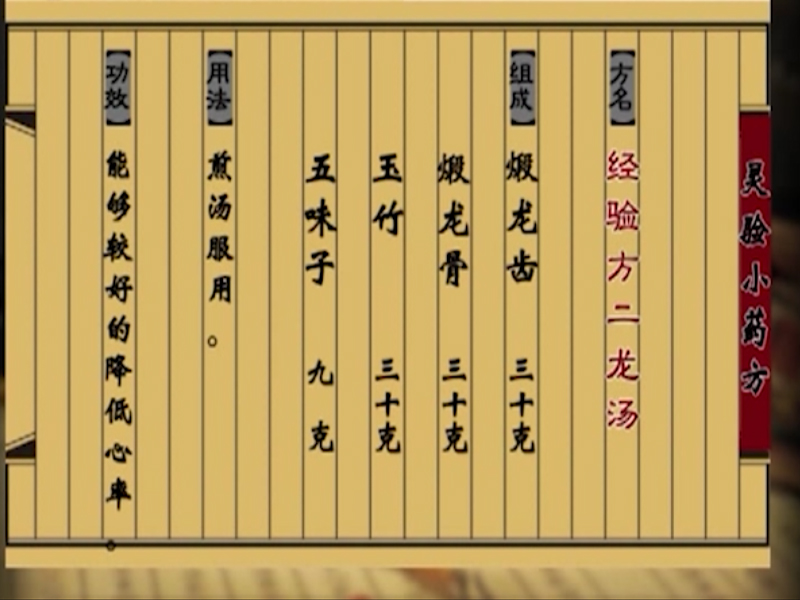 灵验小药方
方名
经验方二龙汤
组成
煅龙齿 三十克
煅龙骨 三十克
玉竹 三十克
五味子 九克
用法
煎汤服用。
功效
能够较好的降低心率。